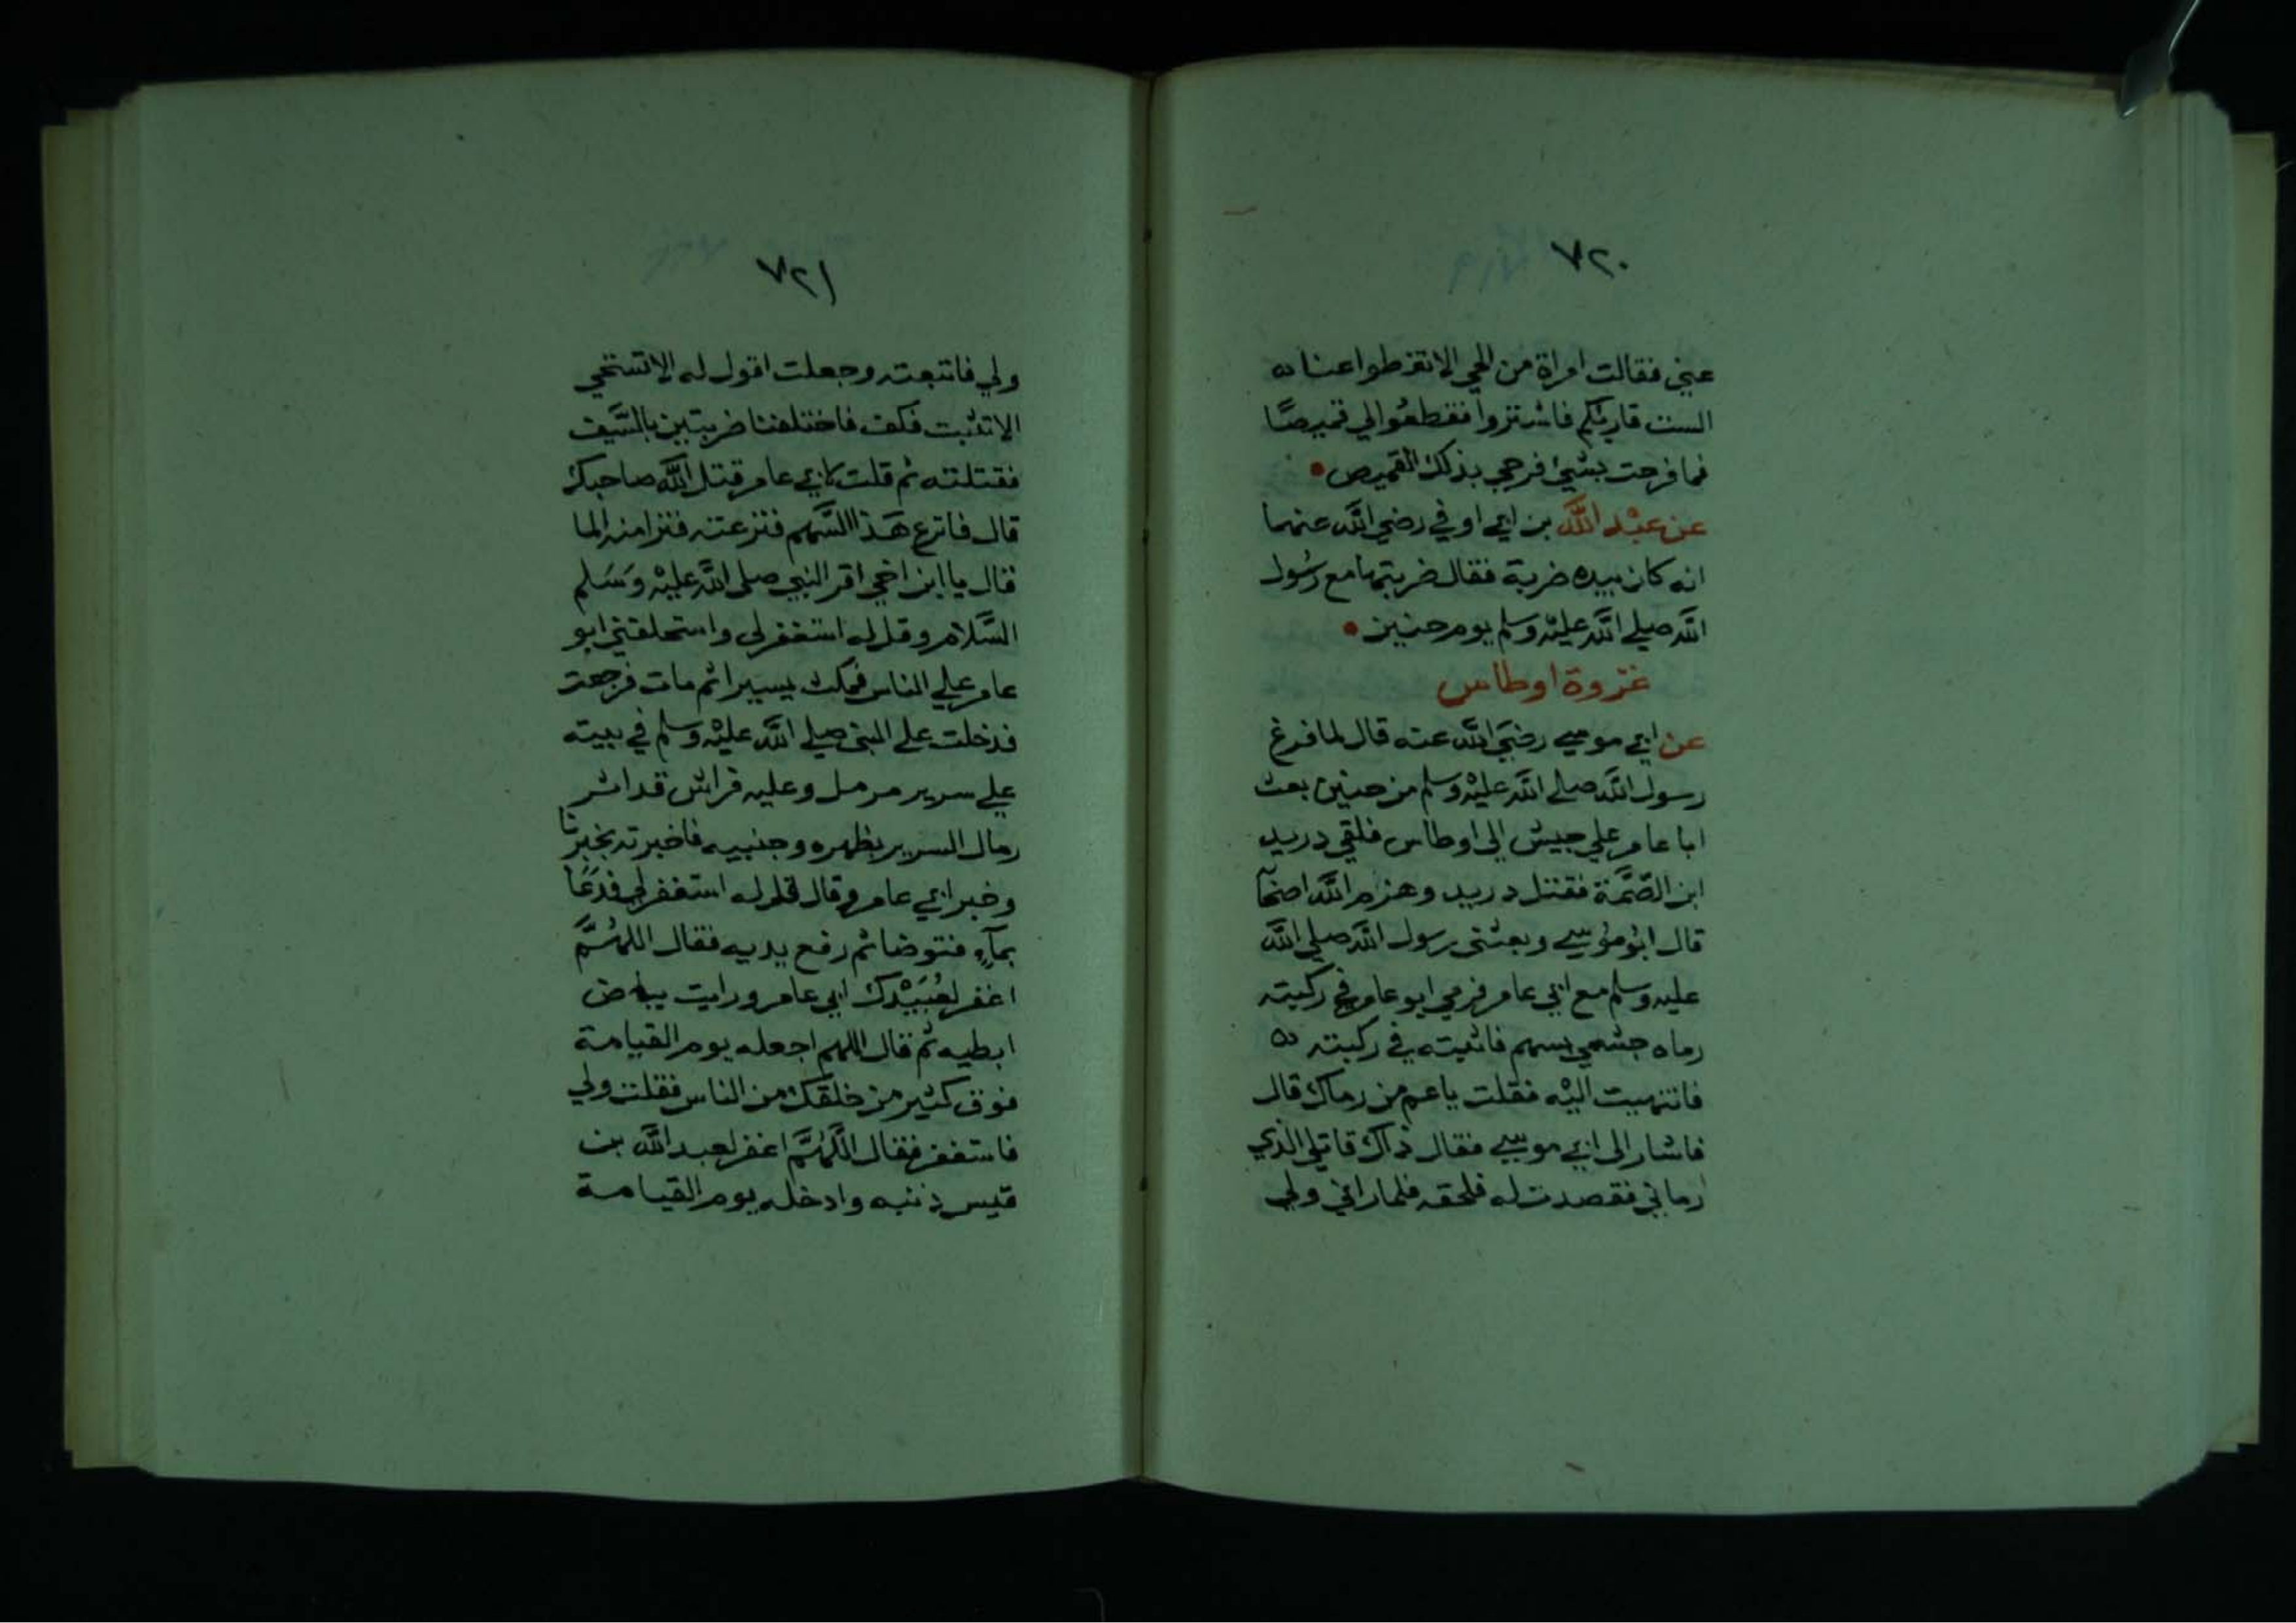 ٧٢٠
عني فقالت امراة من الحي الا تغطوا عنا
الست قارئكم فاشتروا فقطعوا لي قميصًا
فما فرحت بشئ فرحي بذلك القميص
عن عبْد اللَّه بن ابي اوفي رضي اللَّه عنهما
انه كان بيده ضربة فقال ضربتها مع رسُول
اللَّه صلي اللَّه عليْه وسلم يوم حنين
غزوة اوطاس
عن ابي موسي رضيَ اللَّه عنه قال لما فرغ
رسول اللَّه صلي اللَّه عليْه وسلم من حنين بعث
ابا عامر علي جيش الي اوطاس فلقي دريد
ابن الصَّمَّة فقتل دريد وهزم اللَّه اصحا
قال ابوُ موُسي وبعثني رسول اللَّه صلي اللَّه
عليه وسلم مع ابي عامر فرمي ابو عامر في ركبته
رماه جشمي بسهم فاثبته في ركبته
فانتهيت اليْه فقلت يا عم من رماك قال
فاشار الي ابي موسي فقال ذاك قاتلي الذي
رماني فقصدت له فلحقه فلما راني ولي
٧٢١
ولي فاتبعته وجعلت اقول له الا تستحي
الا تثبت فكف فاختلفنا ضربتين بالسَّيف
فقتلته ثم قلت لابي عامر قتل اللَّه صاحبك
قال فانزع هَذا السَّهم فنزعته فنزا منه الما
قال يا ابن اخي اقر النبي صلي اللَّه عليْه وَسَلم
السَّلام وقل له استغفر لي واستخلفني ابو
عامر علي الناس فمكث يسيرا ثم مات فرجعت
فدخلت علي النبي صلي اللَّه عليْه وسلم في بيته
علي سرير مرمل وعليه فراش قد اثر
رمال السرير بظهره وجنبيه فاخبرته بخبرنا
وخبر ابي عامر وقال قل له استغفر لي فدَعَا
بمآءٍ فتوضا ثم رفع يديه فقال اللهُمَّ
اغفر لعُبَيْدك ابي عامر ورايت بياض
ابطيه ثم قال اللهم اجعله يوم القيامة
فوق كثير من خلقك من الناس فقلت ولي
فاستغفر فقال اللَّهُمَّ اغفر لعبد اللَّه بن
قيس ذنبه وادخله يوم القيامة